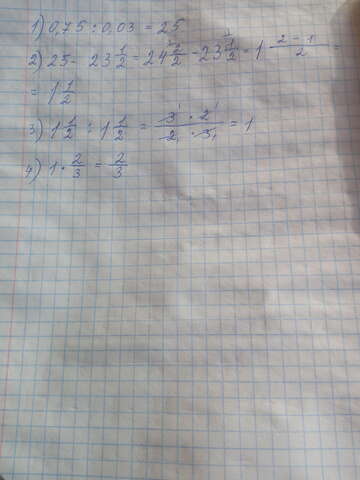 1) 0,75 : 0,03 = 25
2) 25 - 23 1/2 = 24 2/2 - 23 1/2 = 1 (2 - 1)/2 =
= 1 1/2
3) 1 1/2 : 1 1/2 = (3 · 2)/(2 · 3) = 1
4) 1 · 2/3 = 2/3